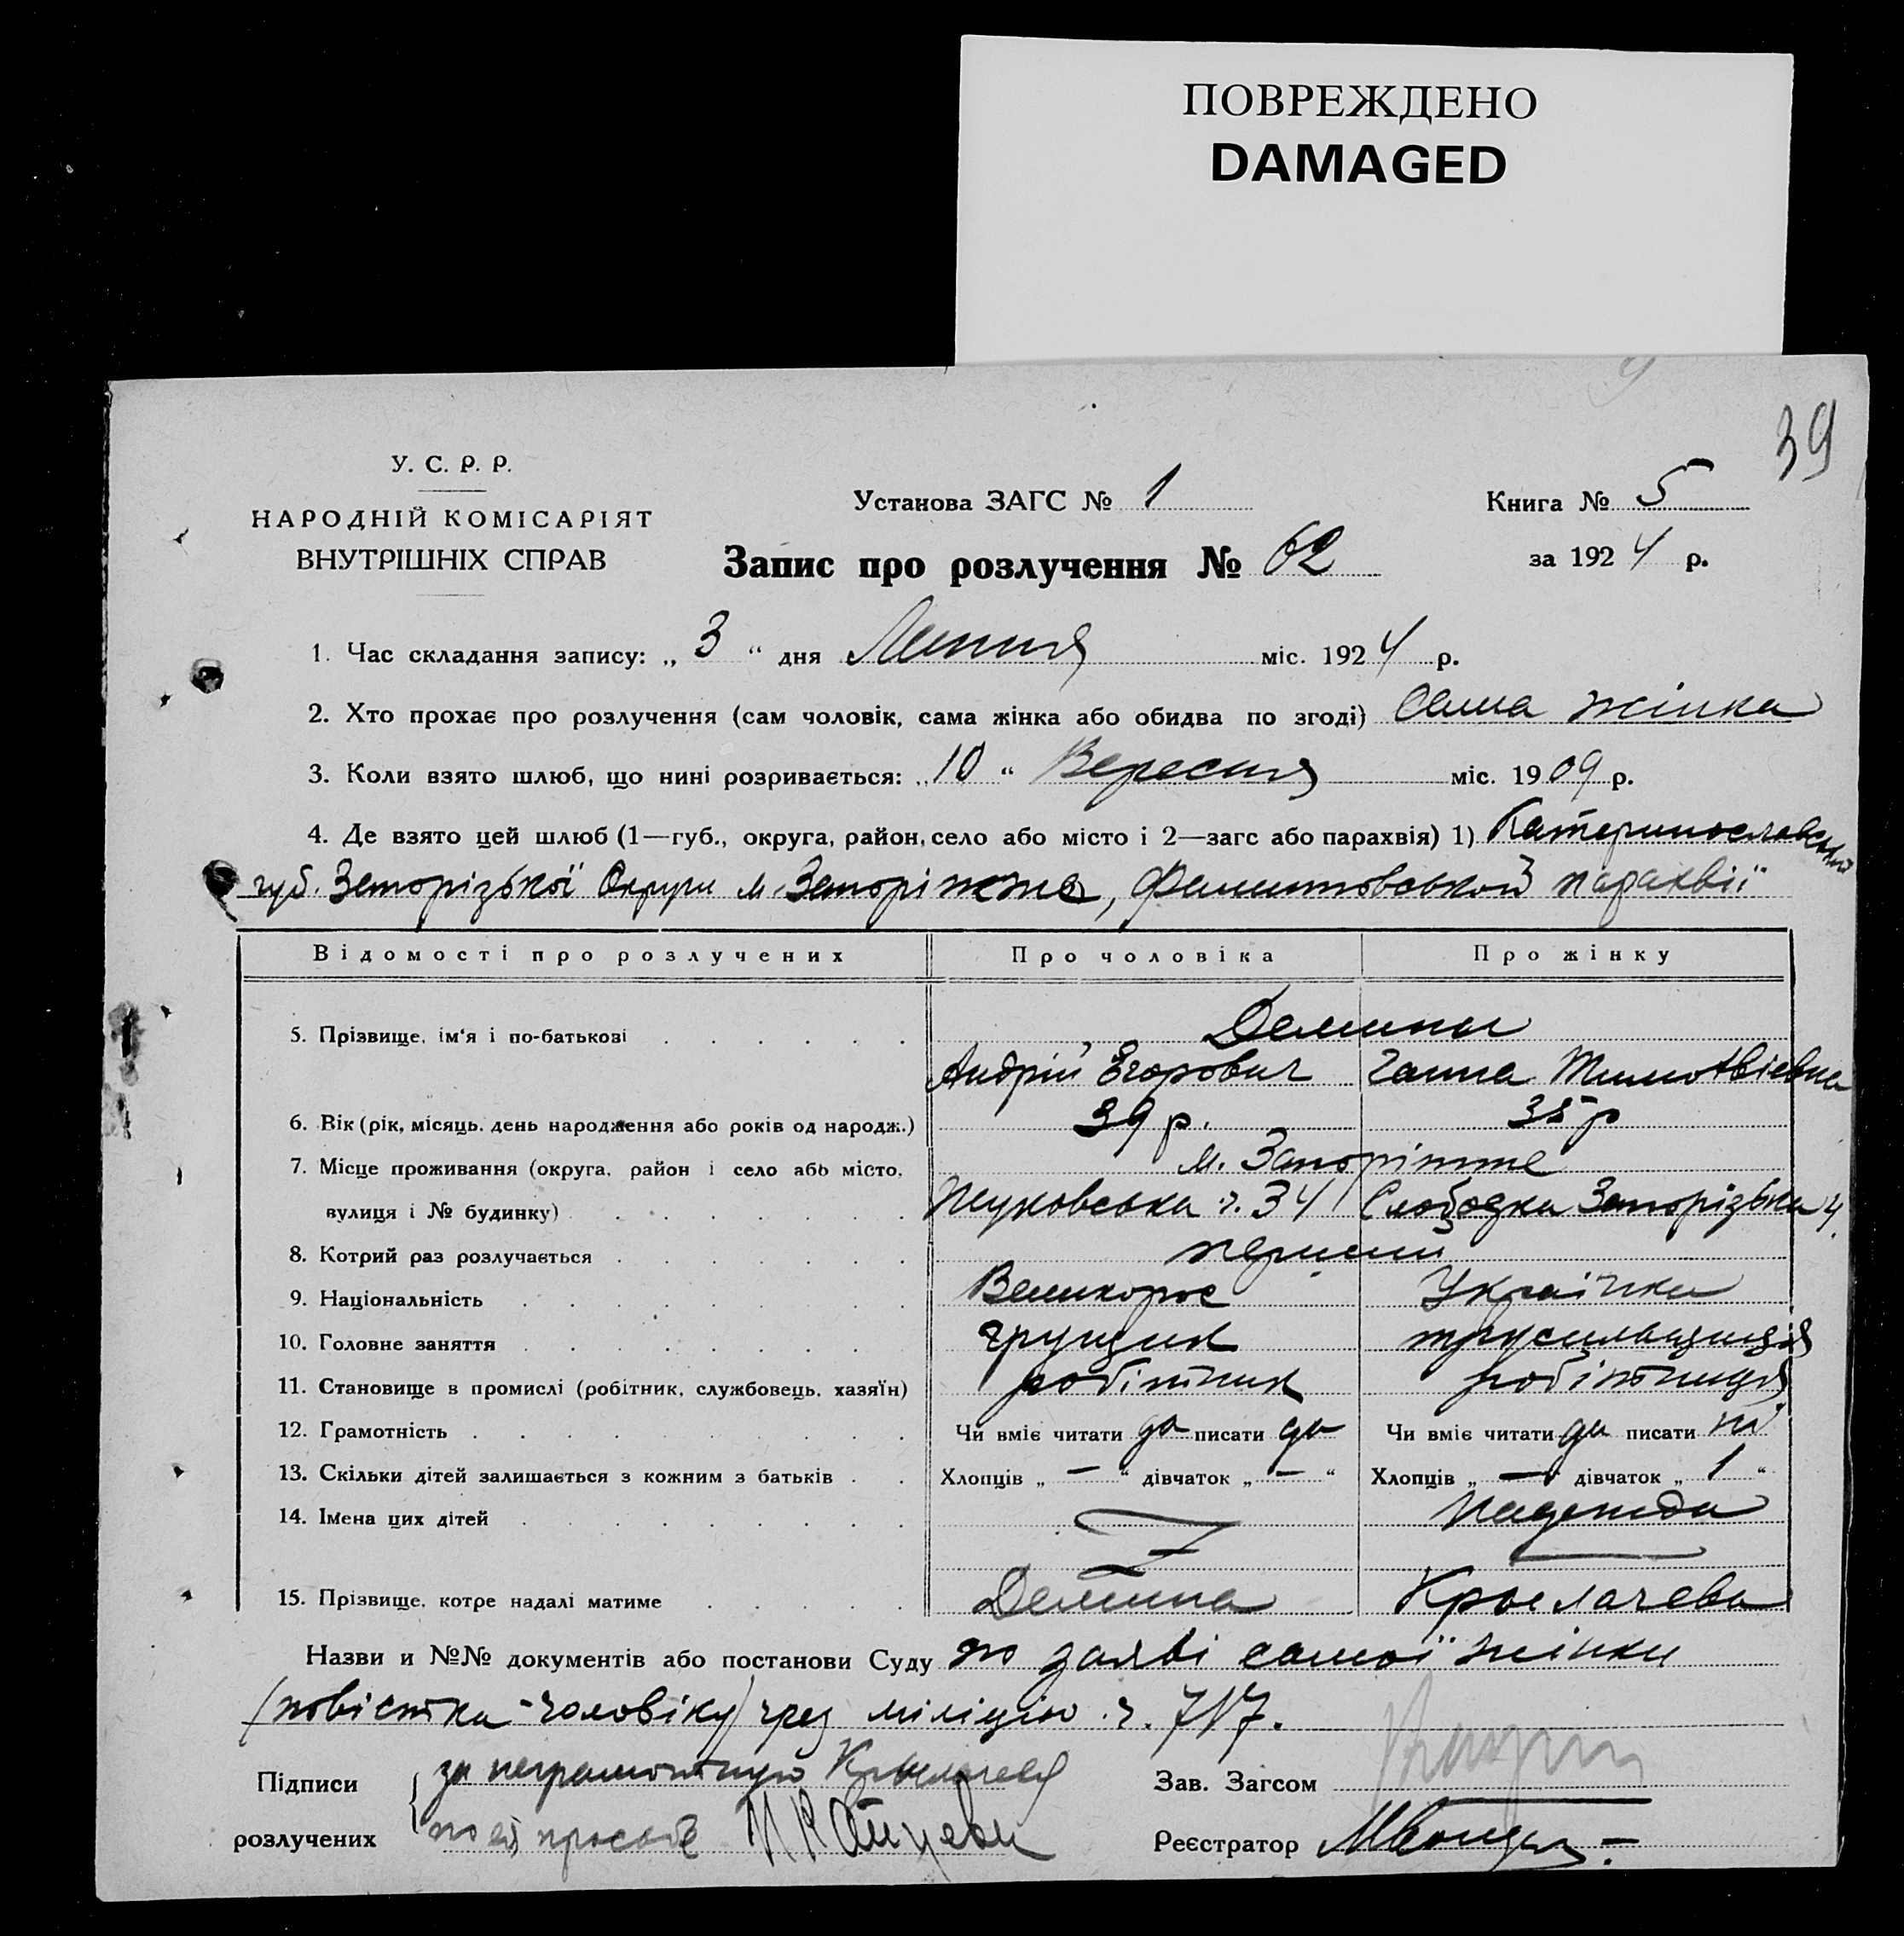 ПОВРЕЖДЕНО
DAMAGED
39
У. С. Р. Р.
НАРОДНІЙ КОМІСАРІЯТ
ВНУТРІШНІХ СПРАВ
Установа ЗАГС № 1
Книга № 5
Запис про розлучення № 62
за 1924 р.
1. Час складання запису: „ 3 “ дня Липня міс. 1924 р.
2. Хто прохає про розлучення (сам чоловік, сама жінка або обидва по згоді) Сама жінка
3. Коли взято шлюб, що нині розривається: „ 10 “ Вересня міс. 1909 р.
4. Де взято цей шлюб (1—губ., округа, район, село або місто і 2—загс або парахвія) 1) Катеринославської
губ. Запорізької Округи м. Запоріжжя, парахвії
Відомості про розлучених Про чоловіка Про жінку
5. Прізвище, ім'я і по-батькові Демины
Андрій Егорович Ганна Тимохвіевна
6. Вік (рік, місяць, день народження або років од народж.) 39 р. 35 р
7. Місце проживання (округа, район і село або місто, м. Запоріжже
вулиця і № будинку) Жуковська ч. 34 Слободка Запорізька 4
8. Котрий раз розлучається перший
9. Національність Великорос Українка
10. Головне заняття грущик
11. Становище в промислі (робітник, службовець, хазяїн) робітник робітниця
12. Грамотність Чи вміє читати да писати да Чи вміє читати да писати ні
13. Скільки дітей залишається з кожним з батьків Хлопців „ — “ дівчаток „ — “ Хлопців „ — “ дівчаток „ 1 “
14. Імена цих дітей Надежда
15. Прізвище, котре надалі матиме Демина Крыслачева
Назви и №№ документів або постанови Суду по заяві самої жінки
(повістка - чоловіку) чрез міліцію ч. 717.
Підписи за неграмотную Крыслачева
Зав. Загсом
розлучених по ея просьбе
Реєстратор